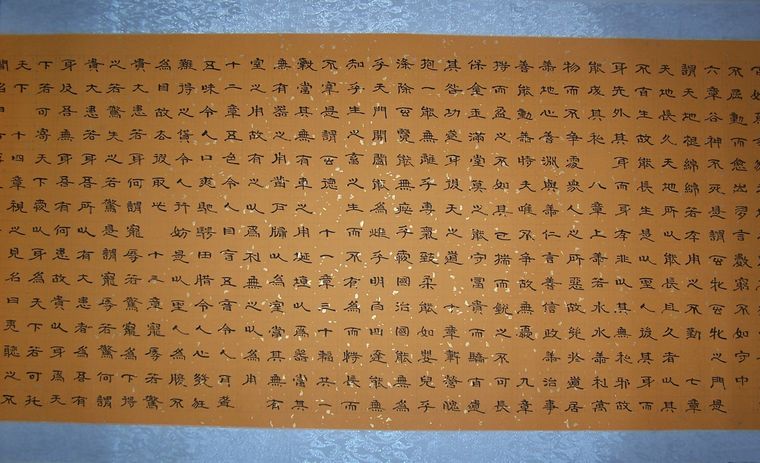 不屈動而愈出多言數窮不如守中
六章谷神不死是謂玄牝玄牝之門是
謂天地根綿綿若存用之不勤　七章
天長地久天地所以能長且久者以其
不自生故能長生是以聖人後其身而
身先外其身而身存非以其無私邪故
能成其私　八章上善若水水善利萬
物而不爭處衆人之所惡故幾於道居
善地心善淵與善仁言善信政善治事
善能動善時夫唯不爭故無尤　九章
持而盈之不如其已揣而銳之不可長
保金玉滿堂莫之能守富貴而驕自遺
其咎功遂身退天之道　十章載營魄
抱一能無離乎專氣致柔能如嬰兒乎
滌除玄覽能無疵乎愛民治國能無為
乎天門開闔能為雌乎明白四達能無
知乎生之畜之生而不有為而不恃長而
不宰是謂玄德　十一章三十輻共一
轂當其無有車之用埏埴以為器當其
無有器之用鑿戶牖以為室當其無有
室之用故有之以為利無之以為用
十二章五色令人目盲五音令人耳聾
五味令人口爽馳騁田獵令人心發狂
難得之貨令人行妨是以聖人為腹不
為目故去彼取此　十三章寵辱若驚
貴大患若身何謂寵辱若驚寵為下得
之若驚失之若驚是謂寵辱若驚何謂
貴大患若身吾所以有大患者為吾有
身及吾無身吾有何患故貴以身為天
下若可寄天下愛以身為天下若可託
天下　十四章視之不見名曰夷聽之不